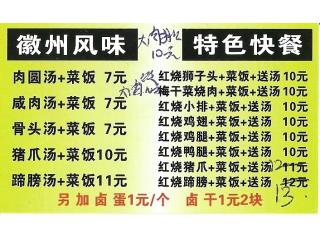 徽州风味 大肉圆 10元 特色快餐
肉圆汤+菜饭 7元
咸肉汤+菜饭 7元
骨头汤+菜饭 7元
猪爪汤+菜饭10元
蹄膀汤+菜饭11元
红烧狮子头+菜饭+送汤 10元
梅干菜烧肉+菜饭+送汤 10元
红烧小排+菜饭+送汤 10元
红烧鸡翅+菜饭+送汤 10元
红烧鸡腿+菜饭+送汤 10元
红烧鸭腿+菜饭+送汤 10元
红烧猪爪+菜饭+送汤 11元 12
红烧蹄膀+菜饭+送汤 12元 13
另加卤蛋1元/个 卤干1元2块